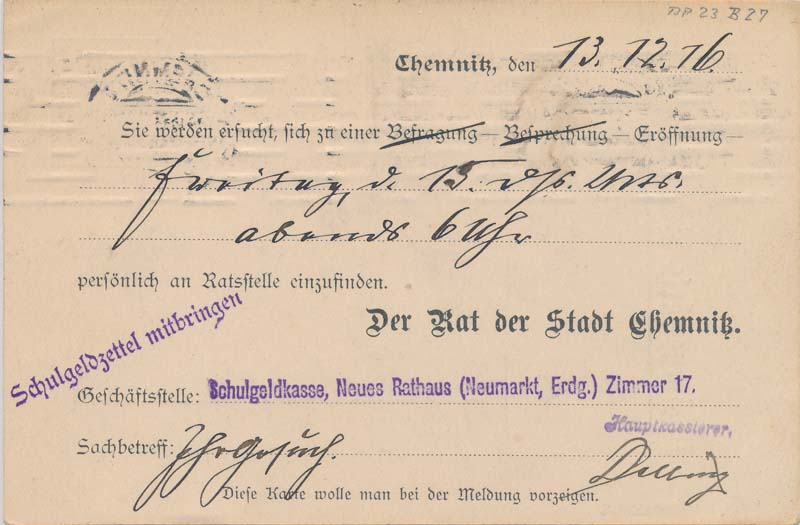 DP 23 B 27
Chemnitz, den 13. 12. 16.
Sie werden ersucht, sich zu einer Befragung — Besprechung — Eröffnung —
Freitag, d. 15. ds. Mts.
abends 6 Uhr
persönlich an Ratsstelle einzufinden.
Der Rat der Stadt Chemnitz.
Schulgeldzettel mitbringen
Geschäftsstelle: Schulgeldkasse, Neues Rathaus (Neumarkt, Erdg.) Zimmer 17.
Hauptkassierer.
Sachbetreff: Ihr Gesuch.
Diese Karte wolle man bei der Meldung vorzeigen.